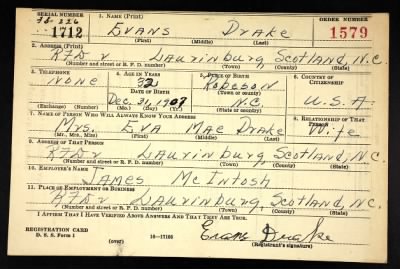 SERIAL NUMBER 1. NAME (Print) ORDER NUMBER
1712 EVANS DRAKE 1579
(First) (Middle) (Last)
2. ADDRESS (Print)
LAURINBURG SCOTLAND, N.C.
(Number and street or R. F. D. number) (Town) (County) (State)
3. TELEPHONE 4. AGE IN YEARS 5. PLACE OF BIRTH 6. COUNTRY OF CITIZENSHIP
NONE 32 ROBESON
(Town or county)
DATE OF BIRTH
Dec. 31, 1907 N.C. U.S.A.
(Exchange) (Number) (Mo.) (Day) (Yr.) (State or country)
7. NAME OF PERSON WHO WILL ALWAYS KNOW YOUR ADDRESS 8. RELATIONSHIP OF THAT PERSON
Mrs. EVA MAE DRAKE Wife
(Mr., Mrs., Miss) (First) (Middle) (Last)
9. ADDRESS OF THAT PERSON
LAURINBURG, SCOTLAND, N.C.
(Number and street or R. F. D. number) (Town) (County) (State)
10. EMPLOYER'S NAME
JAMES McINTOSH
11. PLACE OF EMPLOYMENT OR BUSINESS
LAURINBURG, SCOTLAND, N.C.
(Number and street or R. F. D. number) (Town) (County) (State)
I AFFIRM THAT I HAVE VERIFIED ABOVE ANSWERS AND THAT THEY ARE TRUE.
REGISTRATION CARD
D. S. S. Form 1 16-17105 Evans Drake
(over) (Registrant's signature)